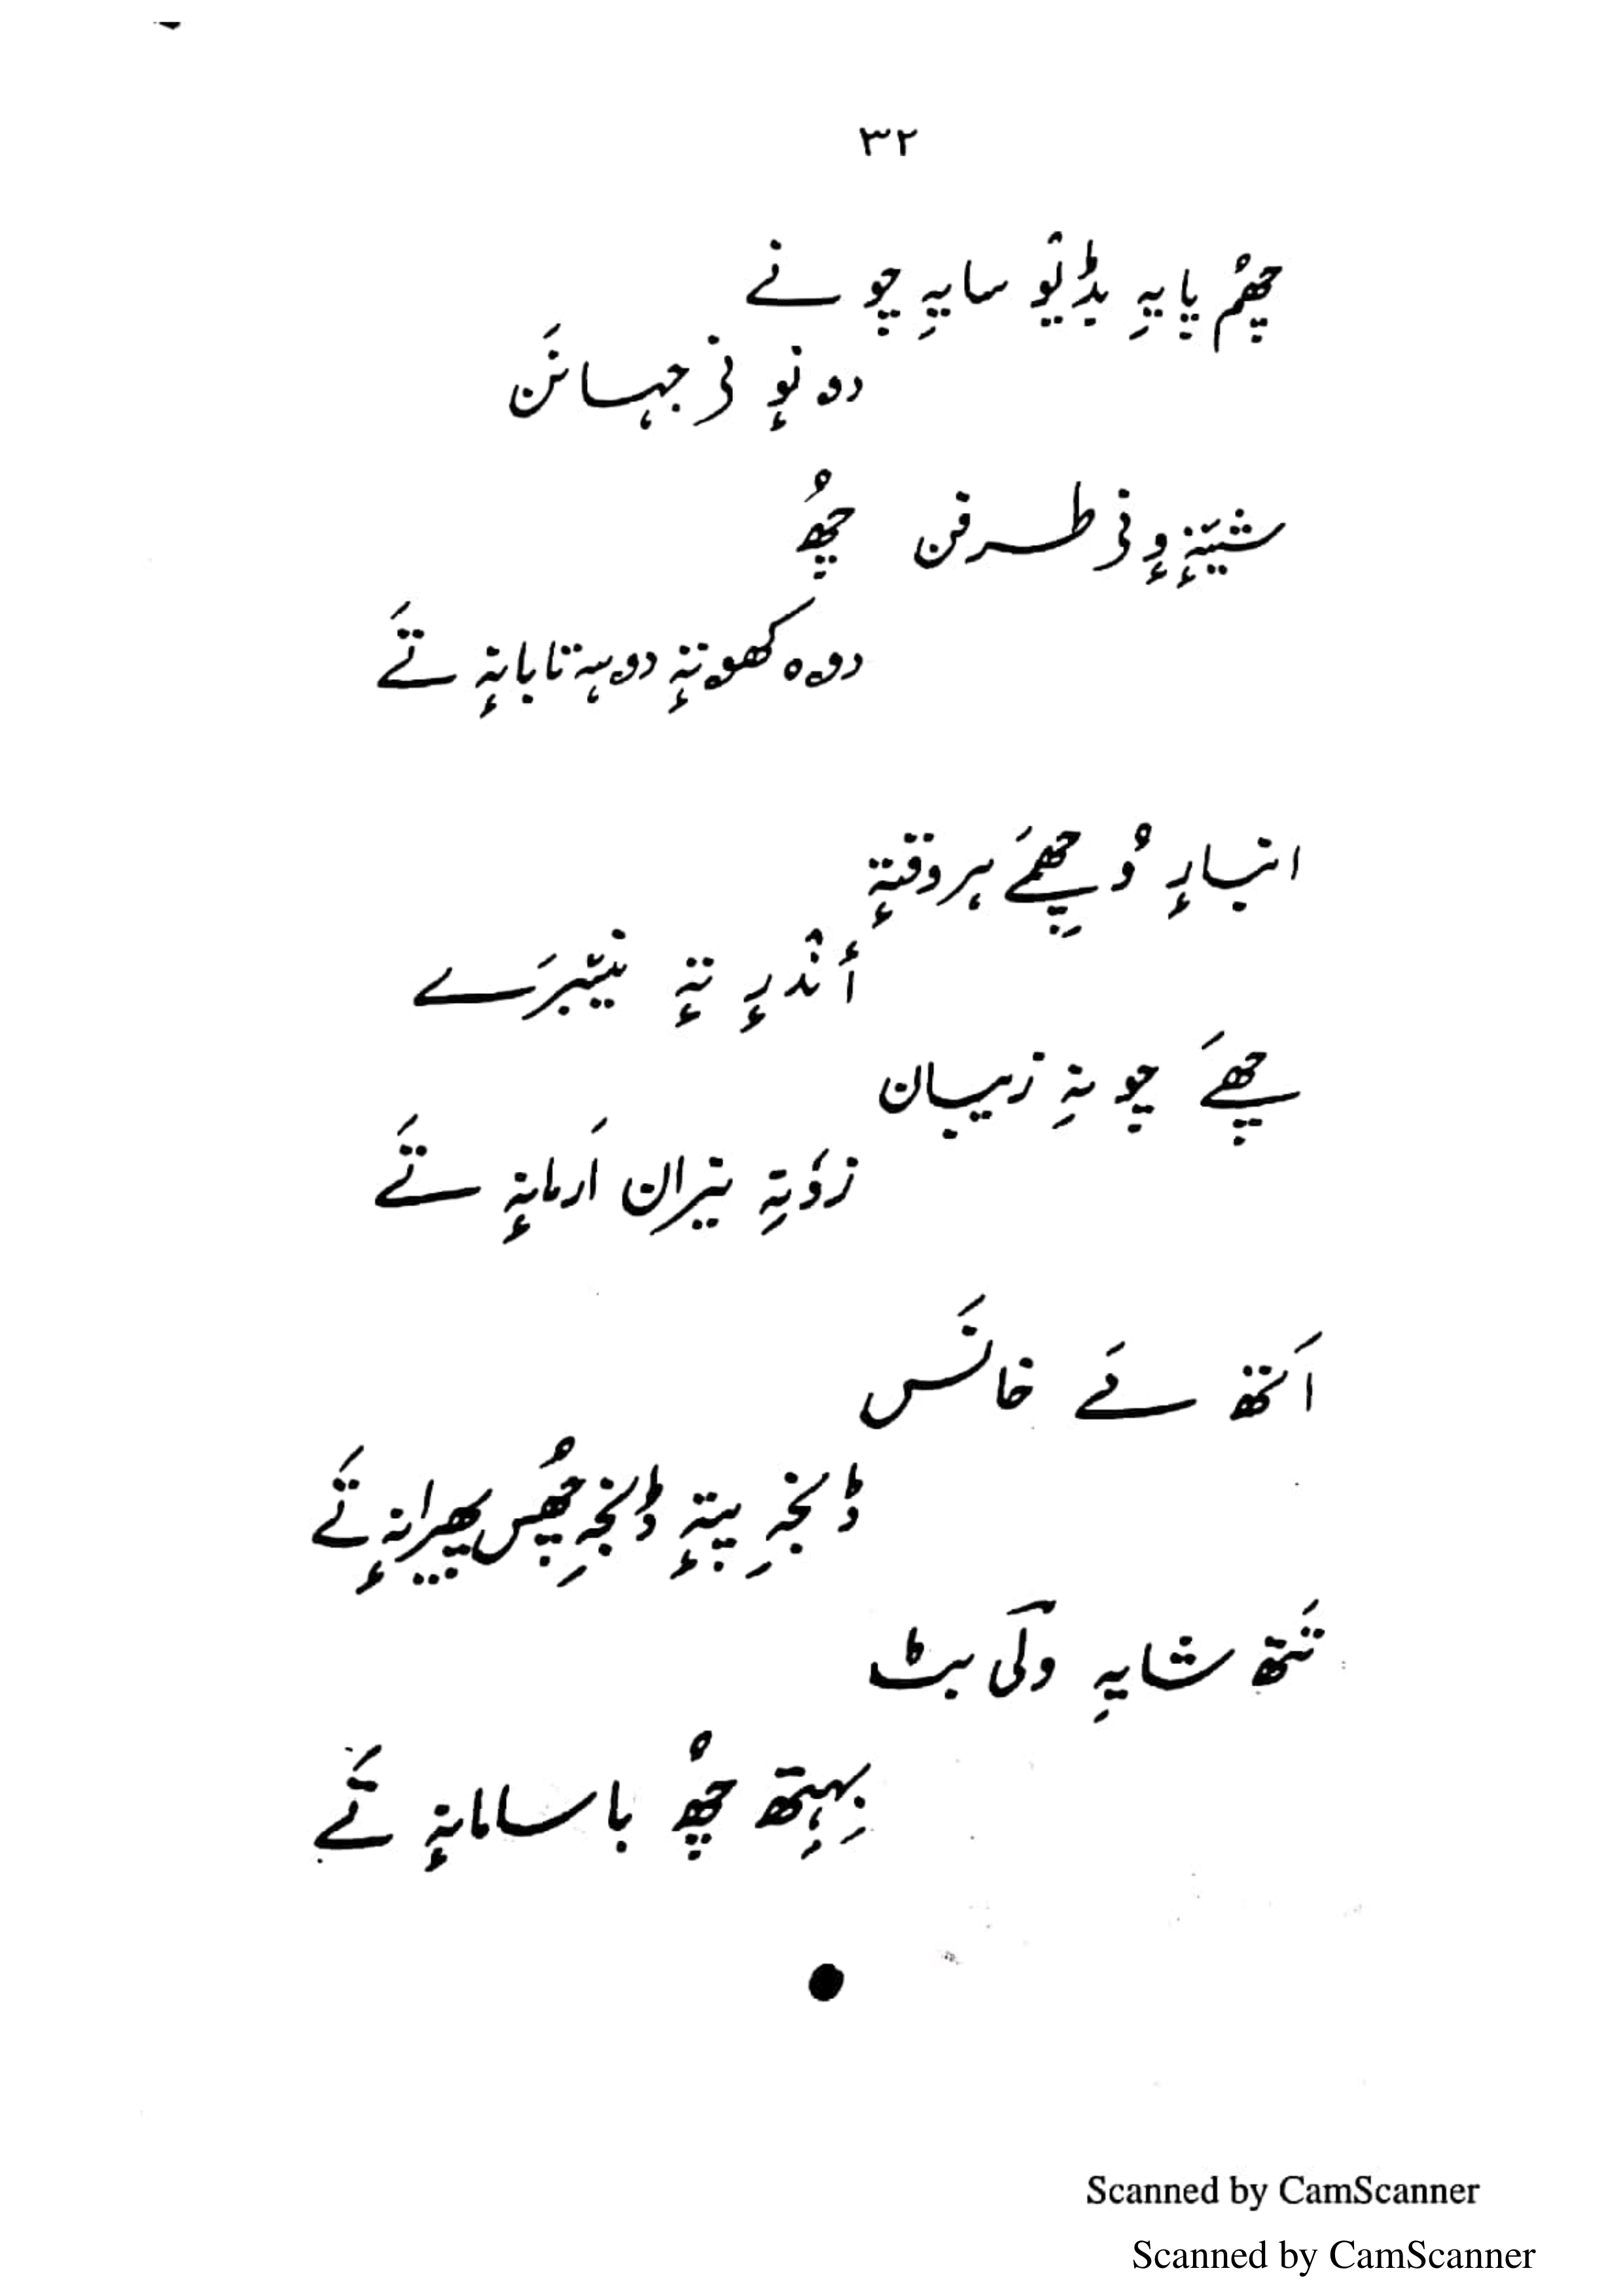 ۳۲
چھُم پایہِ بڈیٚو سایہِ چو نے
دہ نوٕ نی جہانَن
شیٚنہٕ وٕنی طرفن چھُ
دہ کھۄتہٕ دۄہہ تابانہٕ تَے
انبارٕ وُچھِمَے ہر وقتہٕ
أندرٕ تہٕ نیٚبرَے
چھےَ چونہِ زیبان
زوٗتہِ نیران اَرمانہٕ تَے
اَتھ سَے خانَس
ڈلخہِ پتہٕ ڈلخہِ چھُس پھیرانہٕ تَے
تَتھ شایہِ ولَی بٹ
بِہِتھ چھُ باسامانہٕ تَے
Scanned by CamScanner
Scanned by CamScanner